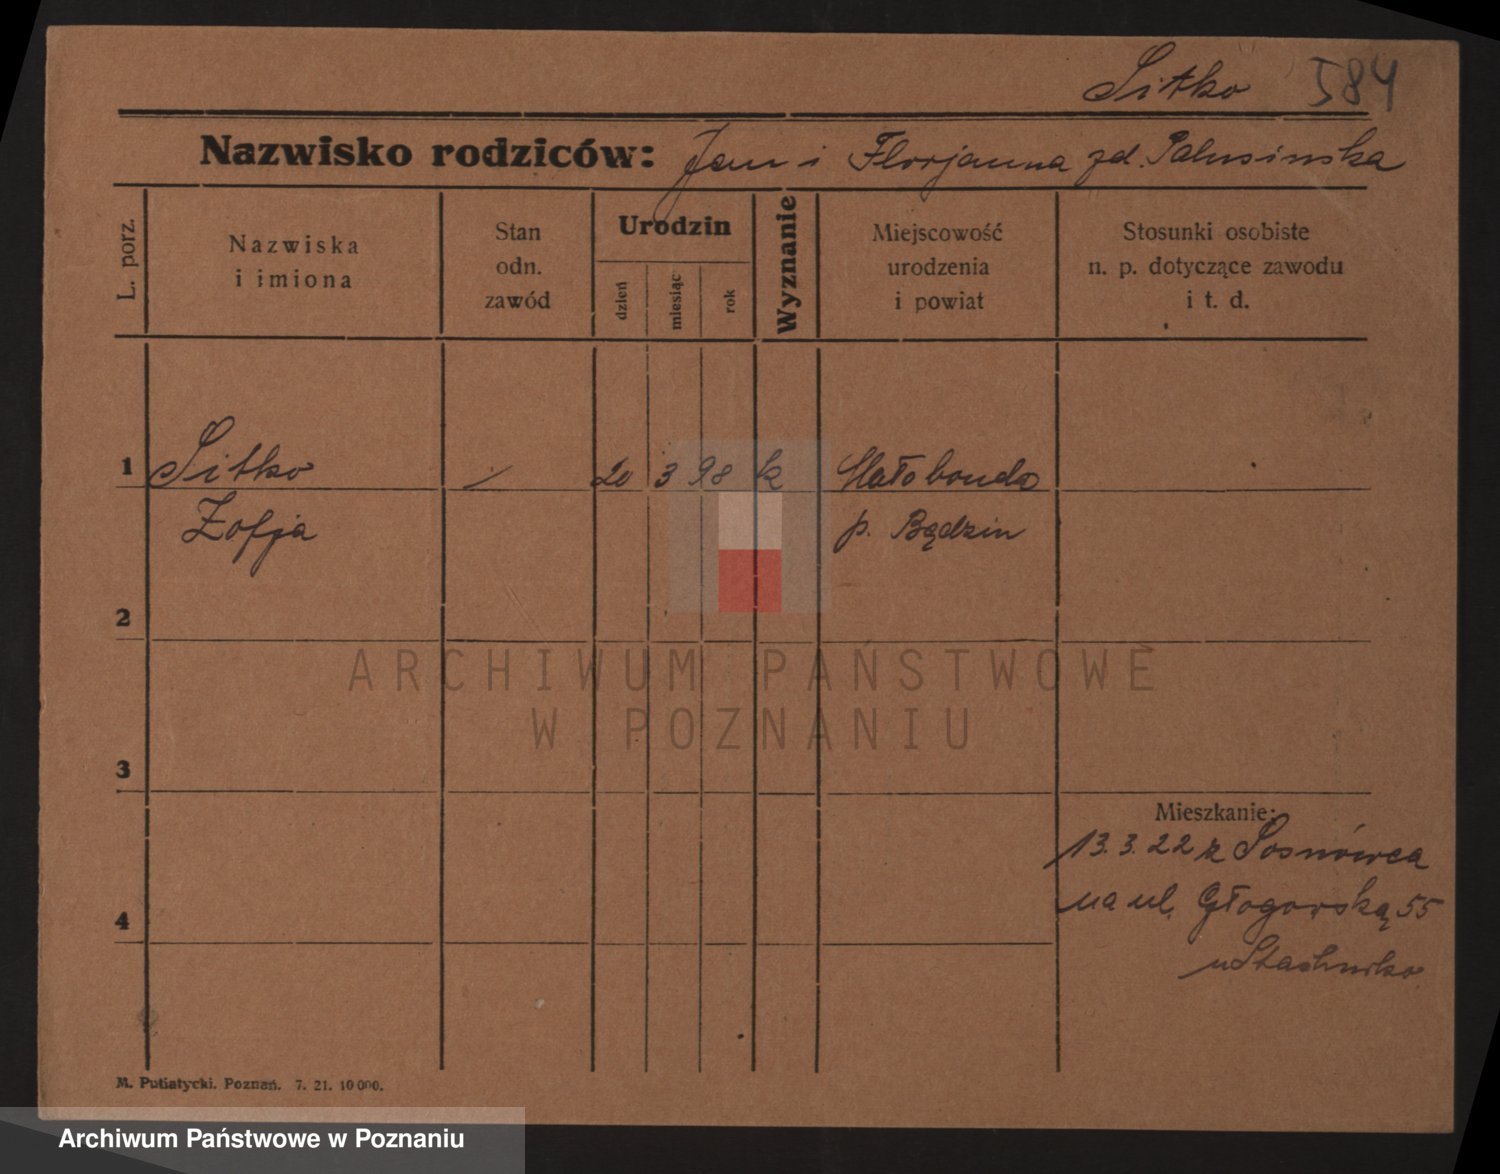 Sitko 584
Nazwisko rodziców: Jan i Florjanna zd. Palusinska
L. porz.
Nazwiska
i imiona
Stan
odn.
zawód
Urodzin
dzień
miesiąc
rok
Wyznanie
Miejscowość
urodzenia
i powiat
Stosunki osobiste
n. p. dotyczące zawodu
i t. d.
1 Sitko 20 3 98 k Małobondz
Zofja p. Bądzin
2
3
Mieszkanie:
13.3.22 z Sosnówca
na ul. Głogowską 55
4
u
M. Putiatycki. Poznań. 7. 21. 10 000.
ARCHIWUM PAŃSTWOWE
W POZNANIU
Archiwum Państwowe w Poznaniu